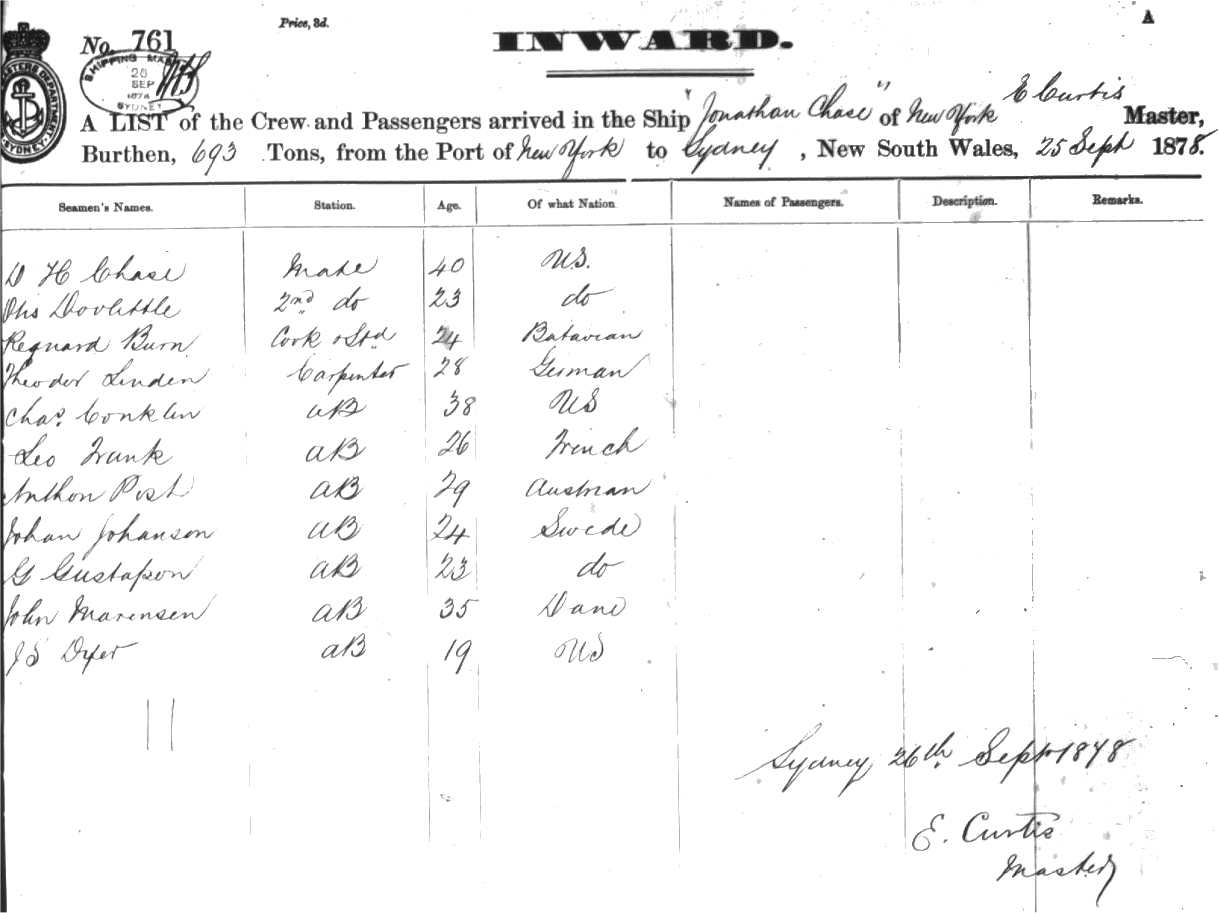 Price, 3d.
A
No. 761
INWARD.
SHIPPING MASTER
26
SEP
1878
SYDNEY
SYDNEY
E Curtis
A LIST of the Crew and Passengers arrived in the Ship "Jonathan Chase" of New York Master,
Burthen, 693 Tons, from the Port of New York to Sydney, New South Wales, 25 Sept 1878.
Seamen's Names. Station. Age. Of what Nation Names of Passengers. Description. Remarks.
D H Chase Mate 40 U.S.
Otis Doolittle 2nd do 23 do
Regnard Burn Cook & Std 24 Batavian
Theodor Linden Carpenter 28 German
Chas. Conklin AB 38 US
Leo Frank AB 26 French
Anthon Post AB 29 Austrian
Johan Johanson AB 24 Swede
G Gustafson AB 23 do
John Marensen AB 35 Dane
J S Dyer AB 19 US
11
Sydney, 26th. Sept 1878
E. Curtis
Master